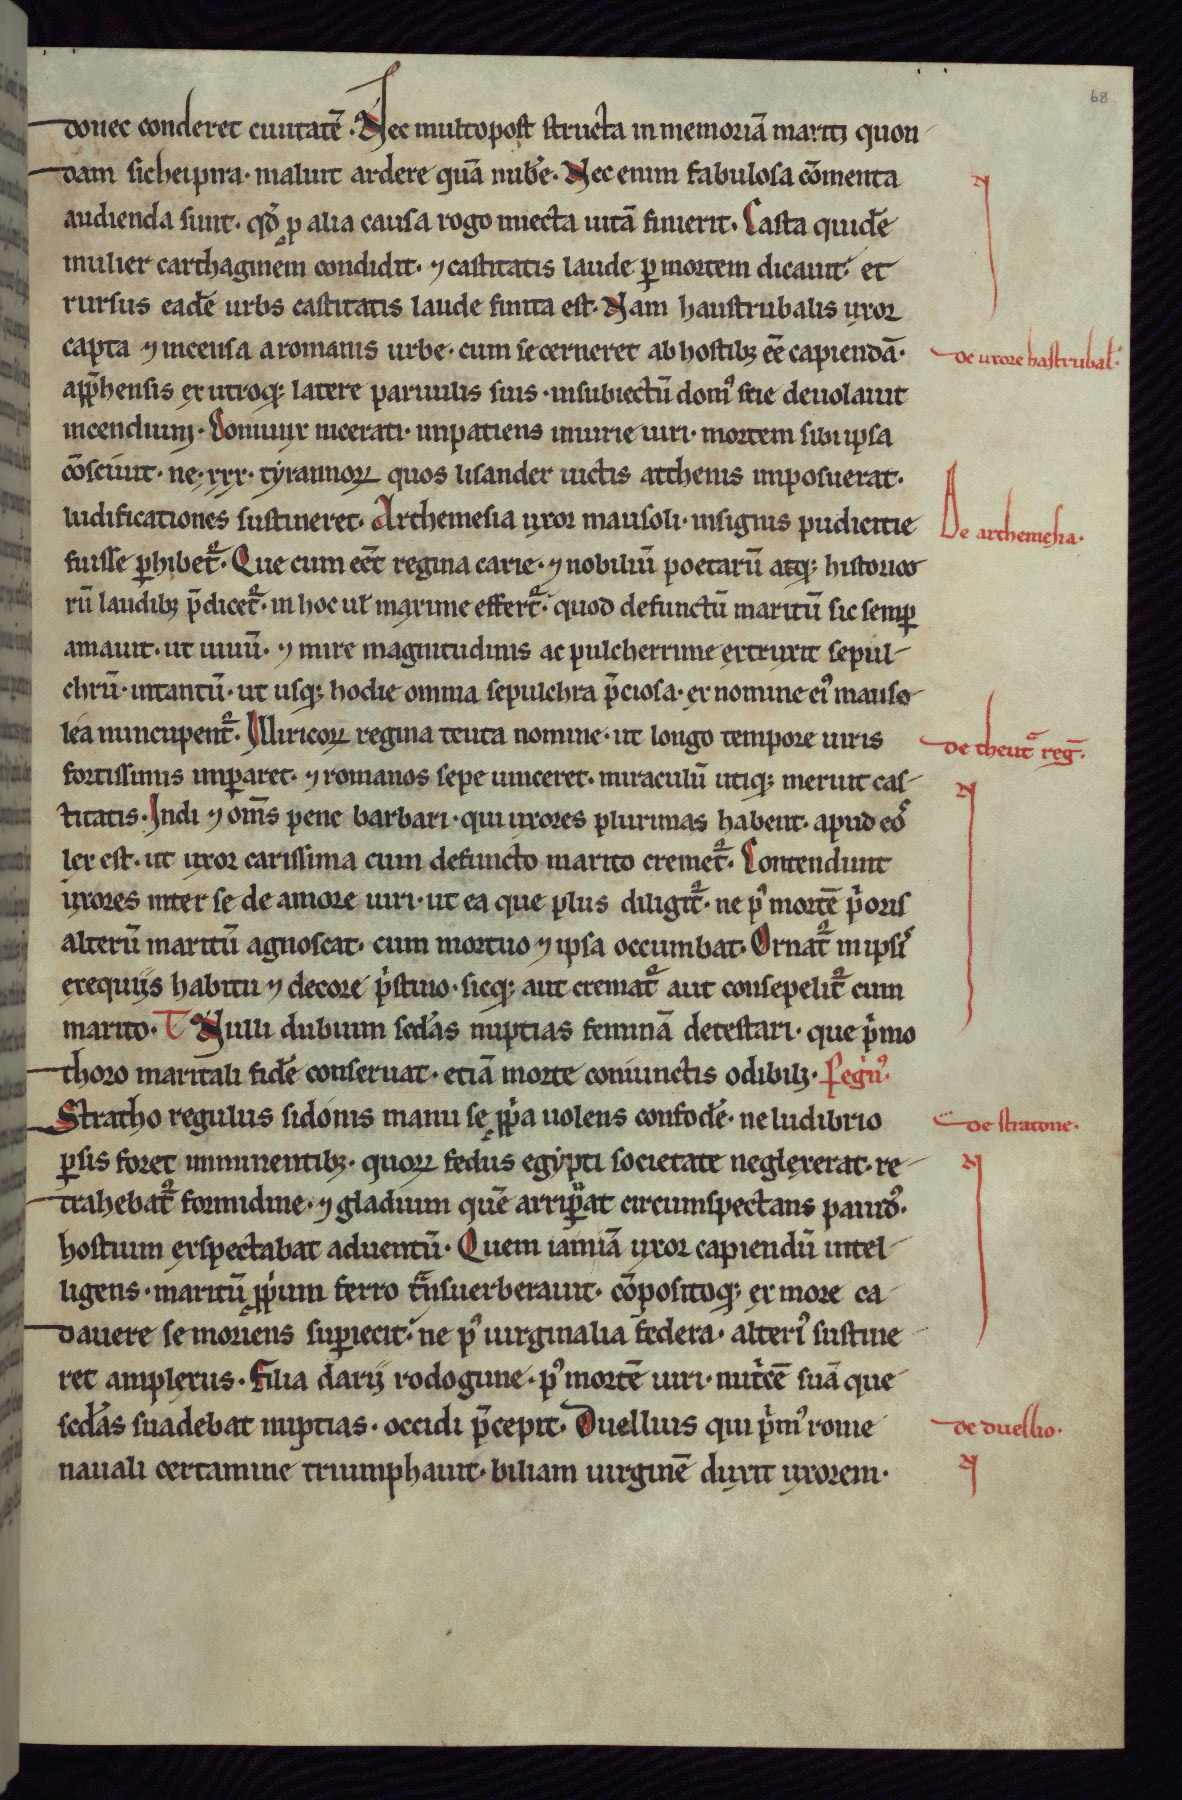 68
donec conderet ciuitatē. Nec multopost structa in memoriā mariti quon
dam sichei pira. maluit ardere quā nube᷒. Nec enim fabulosa cōmenta
audienda sunt. qđ p alia causa rogo iniecta uitā finierit. Casta quidē
mulier carthaginem condidit. ⁊ castitatis laude ꝑ mortem dicauit. et
rursus eadē urbs castitatis laude finita est. Nam haustrubalis uxor
capta ⁊ incensa a romanis urbe. cum se cerneret ab hostibꝫ eē capiendā.
de uxore hastrubał.
app̄hensis ex utroqꝫ latere paruulis suis. in subiectū domꝰ sue deuolauit
incendium. Coniunx nicerati. inpatiens iniurie uiri. mortem sibi ipsa
cōsciuit. ne. xxx. tyrannoꝝ quos lisander uictis atthenis imposuerat.
ludificationes sustineret. Arthemesia uxor mausoli. insignis pudicitie
De arthemesia.
fuisse ꝑhibet᷑. Que cum eēt regina carie. ⁊ nobiliū poetarū atqꝫ historico
rū laudibꝫ p̄dicet᷑. in hoc uł maxime effert᷑. quod defunctū maritū sic semꝑ
amauit. ut uiuū. ⁊ mire magnitudinis ac pulcherrime extruxit sepul
chrū. intantū. ut usqꝫ hodie omnia sepulchra p̄ciosa. ex nomine eiꝰ mauso
lea nuncupent᷑. Illiricoꝝ regina teuta nomine. ut longo tempore uiris
de theut᷑ reḡ.
fortissimis imꝑaret. ⁊ romanos sepe uinceret. miraculū utiqꝫ meruit cas
titatis. Indi ⁊ om̄s pene barbari. qui uxores plurimas habent. apud eoˢ
lex est. ut uxor carissima cum defuncto marito cremet᷑. Contendunt
uxores inter se de amore uiri. ut ea que plus diligit᷑. ne pꝰ mortē pͥoris
alterū maritū agnoscat. cum mortuo ⁊ ipsa occumbat. Ornat᷑ in ipsiˢ
exequiis habitu ⁊ decore pͥstino. sicqꝫ aut cremat᷑ aut consepelit᷑ cum
marito. Nulli dubium sed᷒as nuptias feminā detestari. que pͥmo
thoro maritali fidē conseruat. etiā morte coniunctis odibilꝫ.
Stratho regulus sidonis manu se ꝓpͥa uolens confodē. ne ludibrio
de stratone.
ꝑsis foret imminentibꝫ. quoꝝ fedus egypti societate neglexerat. re
trahebat᷑ formidine. ⁊ gladium quē arripuͥat circumspectans pauidꝰ.
hostium exspectabat aduentū. Quem iamiā uxor capiendū intel
ligens. maritū ꝓpͥum ferro tᷓnsuerberauit. cōpositoqꝫ ex more ca
dauere se moriens suꝑiecit. ne pꝰ uirginalia federa. alteriꝰ sustine
ret amplexus. Filia darii rodogune. pꝰ mortē uiri. nutͥcē suā que
sed᷒as suadebat nuptias. occidi p̄cepit. Duellius qui pͥmꝰ rome
de duellio.
nauali certamine triumphauit. biliam uirginē duxit uxorem.